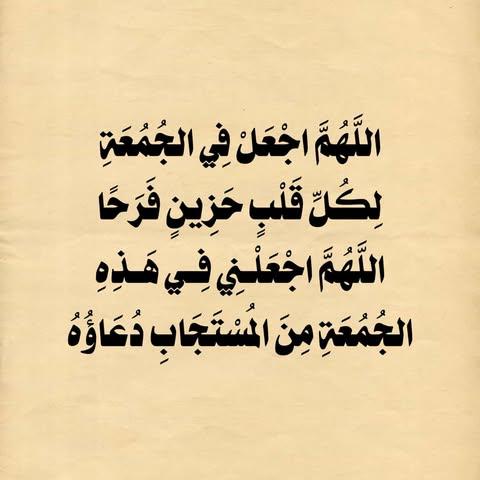 اللَّهُمَّ اجْعَلْ فِي الجُمُعَةِ
لِكُلِّ قَلْبٍ حَزِينٍ فَرَحًا
اللَّهُمَّ اجْعَلْنِي فِي هَذِهِ
الجُمُعَةِ مِنَ المُسْتَجَابِ دُعَاؤُهُ